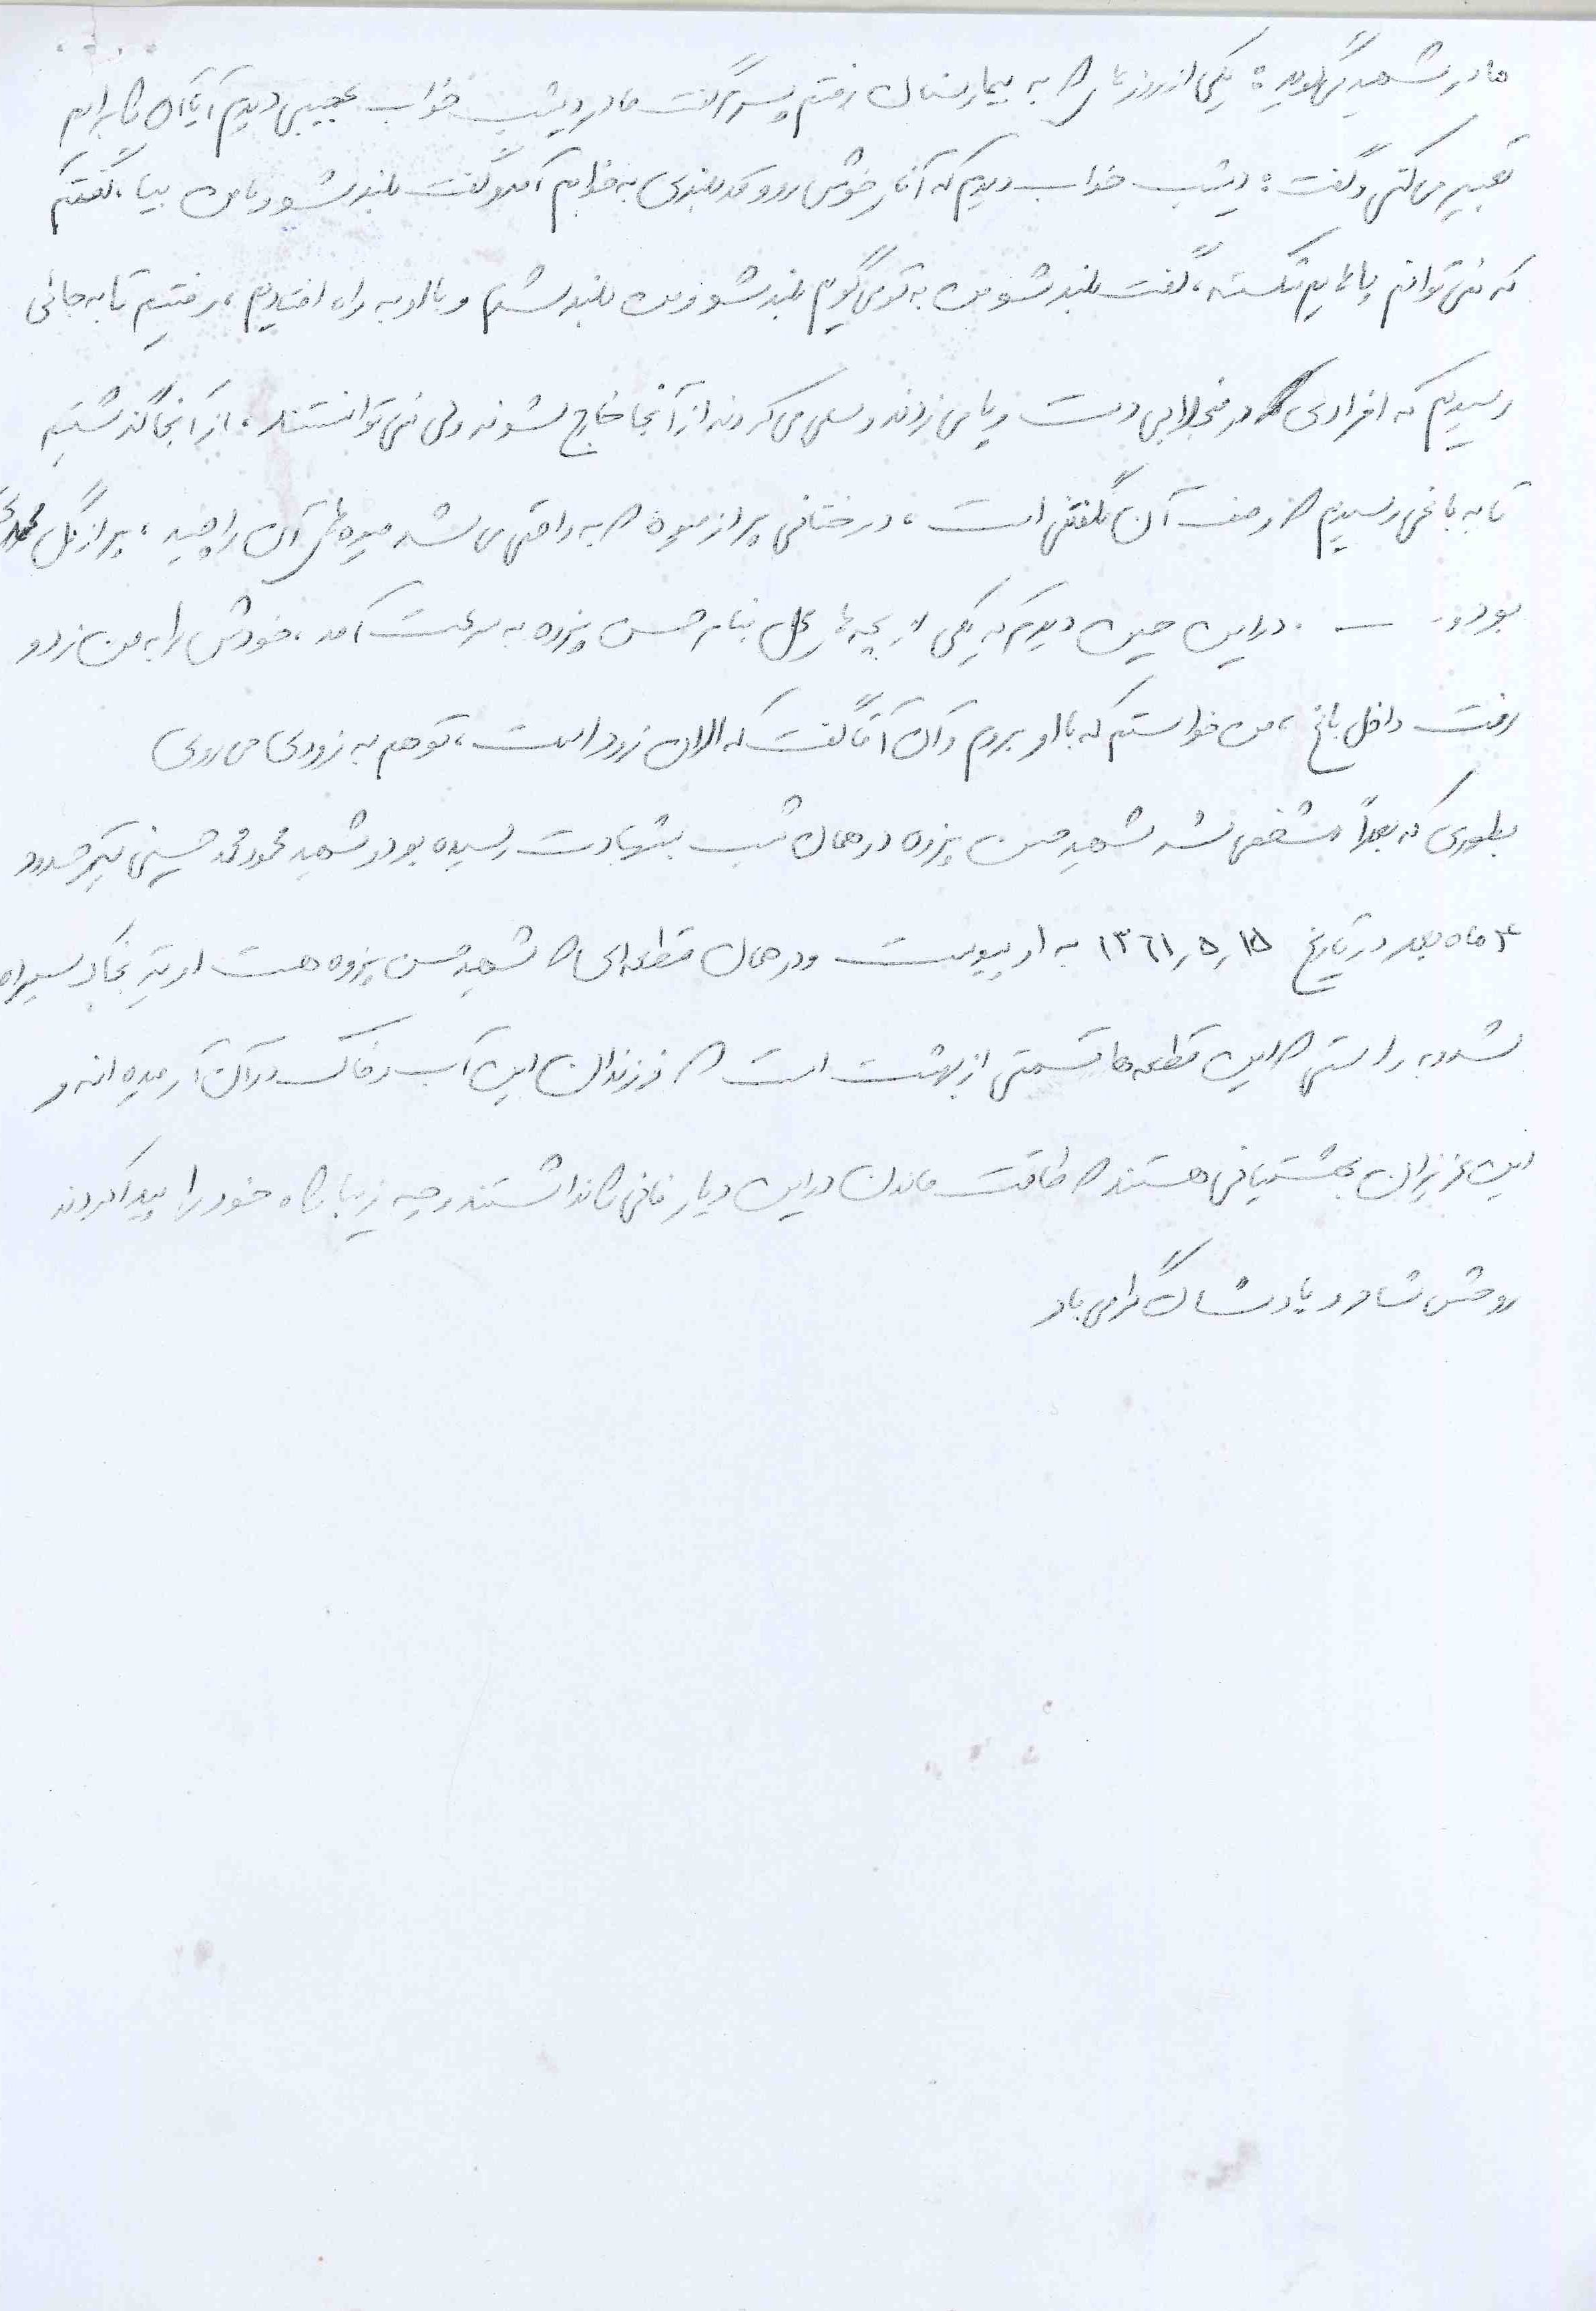 مادر شهید می‌گوید: یکی از روزهای که به بیمارستان رفتم پسرم گفت مادر دیشب خواب عجیبی دیدم آیا آن را برایم
تعبیر می کنی و گفت: دیشب خواب دیدم که آقای خوش رو و قد بلندی به خوابم آمد و گفت بلند شو و با من بیا، گفتم
که نمی توانم پاهایم شکسته، گفت بلند شو من به تو می گویم بلند شو و من بلند شدم و با او به راه افتادیم، رفتیم تا به جائی
رسیدیم که افرادی در منجلابی دست و پا می زدند و سعی می کردند از آنجا خارج بشوند ولی نمی توانستند، از آنجا گذشتیم
تا به باغی رسیدیم که وصف آن نگفتنی است، درختانی پر از میوه که به راحتی می شد میوه های آن را چید، پر از گل
بود و ... در این حین دیدم که یکی از بچه های محل بنام حسن پزوه به سرعت آمد، خودش را به من زد و
رفت داخل باغ، من خواستم که با او بروم و آن آقا گفت که الان زود است، تو هم به زودی می روی
بطوری که بعداً مشخص شد شهید حسن پزوه در همان شب بشهادت رسیده بود و شهید محمود محمد حسینی نیز حدود
۴ ماه بعد در تاریخ ۱۳۶۱٫۵٫۱۵ به او پیوست و در همان قطعه‌ای که شهید حسن پزوه هست او نیز بخاک سپرده
شد و به راستی که این قطعه ها قسمتی از بهشت است که فرزندان این آب و خاک در آن آرمیده اند و
این عزیزان بهشتیانی هستند که طاقت ماندن در این دیار فانی را نداشتند و چه زیبا راه خود را پیدا کردند
روحش شاد و یادشان گرامی باد